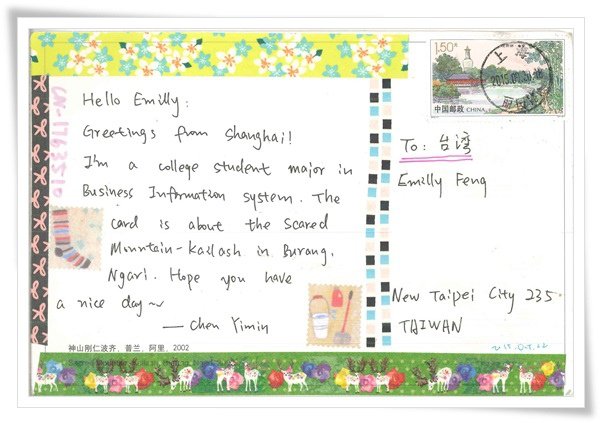 Hello Emilly:
Greetings from Shanghai!
I'm a college student major in
Business Information system. The
card is about the scared
Mountain-Kailash in Burang,
Ngari. Hope you have
a nice day~
— Chen Yimin
神山刚仁波齐，普兰，阿里，2002
CN-1763210
1.50元
中国邮政 CHINA
上海
To: 台湾
Emilly Feng
New Taipei City 235
TAIWAN